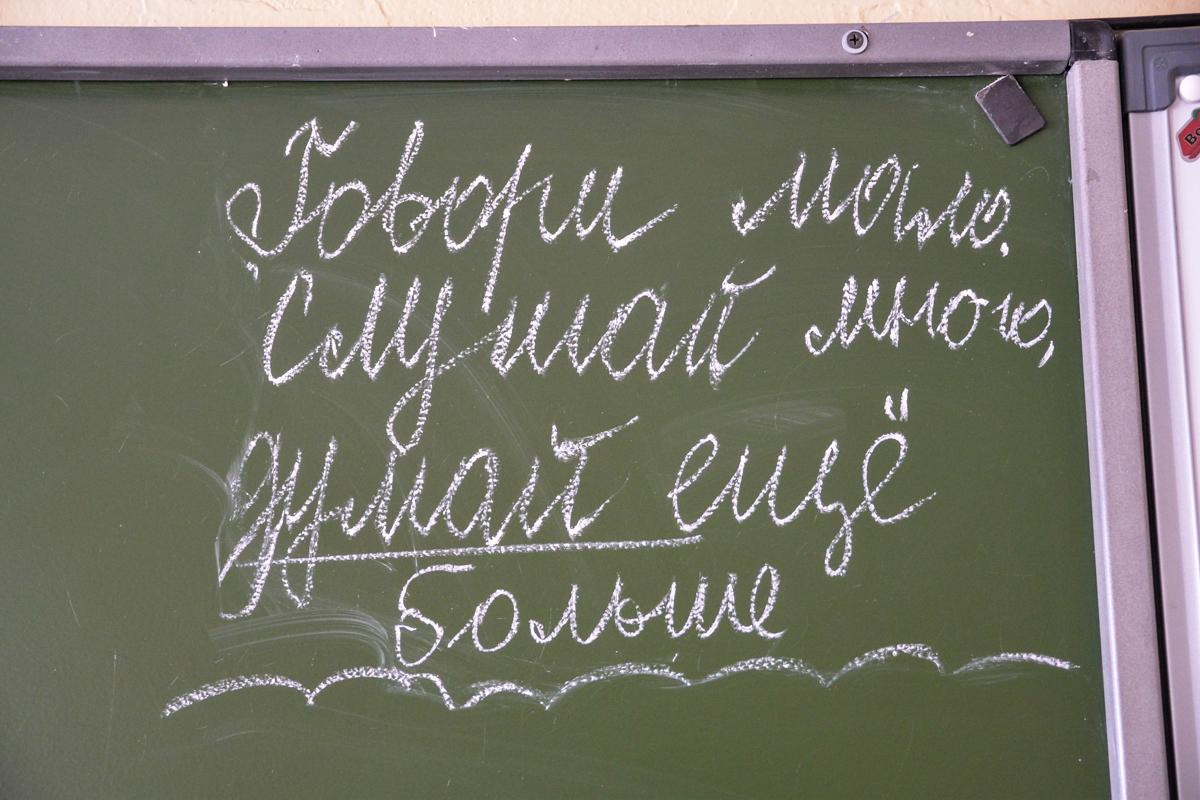 Говори мало,
Слушай много,
думай ещё
больше